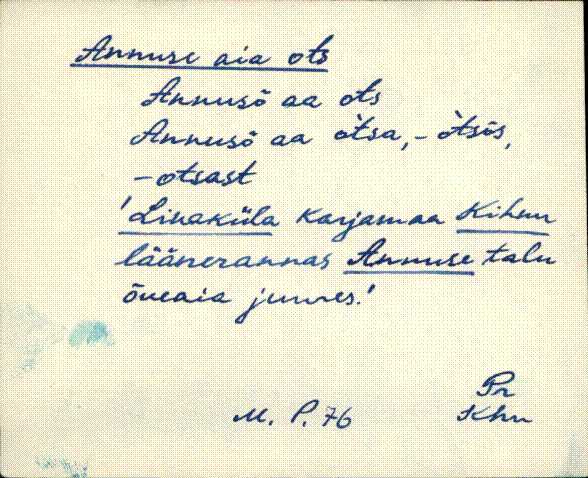 Annuse aia ots
Annusõ aa ots
Annusõ aa òtsa, - òtsõs,
- otsast
'Linaküla karjamaa Kihnu
läänerannas Annuse talu
õueaia juures.'
Pr
M. P. 76 Khn